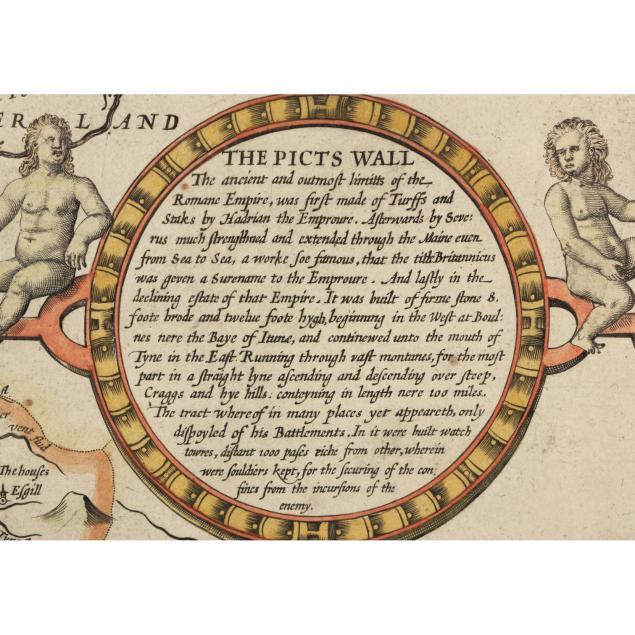 ER L AND
THE PICTS WALL
The ancient and outmost limitts of the
Romane Empire, was first made of Turffs and
Staks by Hadrian the Emproure. Afterwards by Seve:
rus much strengthned and extended through the Maine euen
from Sea to Sea, a worke soe famous, that the title Britannicus
was geven a Surename to the Emproure. And lastly in the
declining estate of that Empire. It was built of firme stone 8.
foote brode and twelue foote hygh, beginnng in the West at Boul:
nes nere the Baye of Itune, and continewed unto the mouth of
Tyne in the East Running through vast montanes, for the most
part in a straight lyne ascending and descending over steep,
Craggs and hye hills: conteyning in length nere 100 miles.
The tract where of in many places yet appeareth, only
dispoyled of his Battlements. In it were built watch
towres, distant 1000 pases eiche from other, wherein
were souldiers kept, for the securing of the con:
fines from the incursions of the
enemy.
vent flud
The houses
Esgill